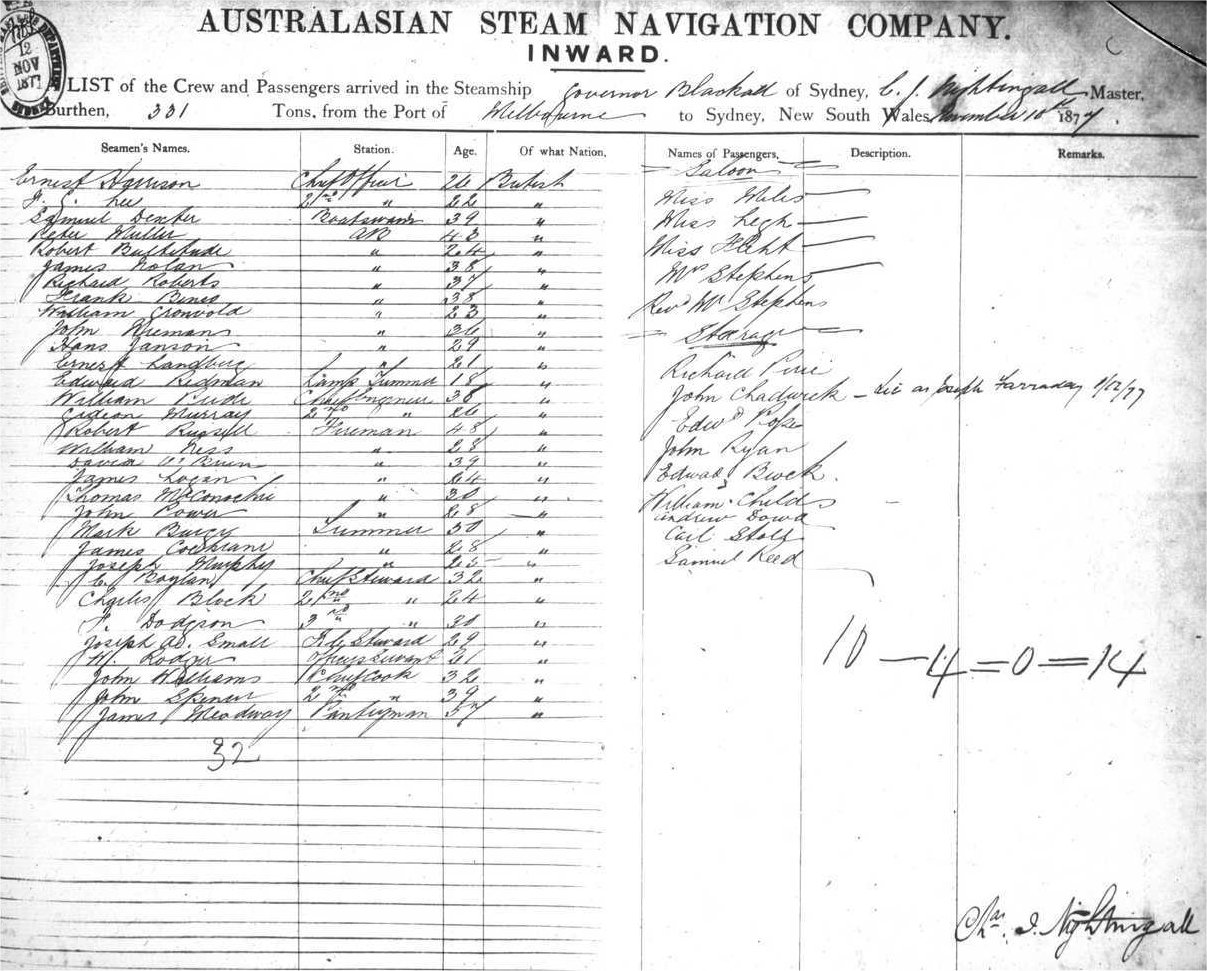 12
NOV
1877
AUSTRALASIAN STEAM NAVIGATION COMPANY.
INWARD.
A LIST of the Crew and Passengers arrived in the Steamship Governor Blackall of Sydney, C. J. Nightingall Master,
Burthen, 331 Tons, from the Port of Melbourne to Sydney, New South Wales, November 10th 1877.
Seamen's Names. Station. Age. Of what Nation, Names of Passengers, Description. Remarks.
Ernest Harrison Chief Officer 26 British
J. E. Lee 2nd " 22 "
Samuel Dexter Boatswain 39 "
Peter Muller AB 43 "
Robert Bultitude " 24 "
James Nolan " 38 "
Richard Roberts " 37 "
Frank Bines " 38 "
William Gronvold " 23 "
John Nieman " 36 "
Hans Janson " 29 "
Ernest Landberg " 21 "
Edward Redman Lamp Trimmer 18 "
William Pride Chief Engineer 38 "
Gideon Murray 2nd " 26 "
Robert Russell Fireman 48 "
William Ness " 28 "
David " 39 "
James Logan " 24 "
Thomas McConochie " 30 "
John Power " 28 "
Mark Trimmer 30 "
James Cochrane " 28 "
Joseph Murphy " 25 "
C. Boylan Chief Steward 32 "
Charles Block 2nd " 24 "
F. Dodgson 3rd " 30 "
Joseph Ad. Small F. C. Steward 29 "
H. Rodger Officers Servant 21 "
John Williams Chief Cook 32 "
John Spencer 2nd " 39 "
James Meadway Pantryman 37 "
32
Saloon
Miss Miles
Miss Legh
Miss Flight
Mrs Stephens
Revd Mr Stephens
Steerage
Richard Pirie
John Chadwick - die as Joseph Farraday 1/12/77
Edwd Pope
John Ryan
Edward Brock.
William Childs
Andrew Dowd
Carl Stolz
Samuel Reed
10 - 4 = 0 = 14
Chas. J. Nightingall